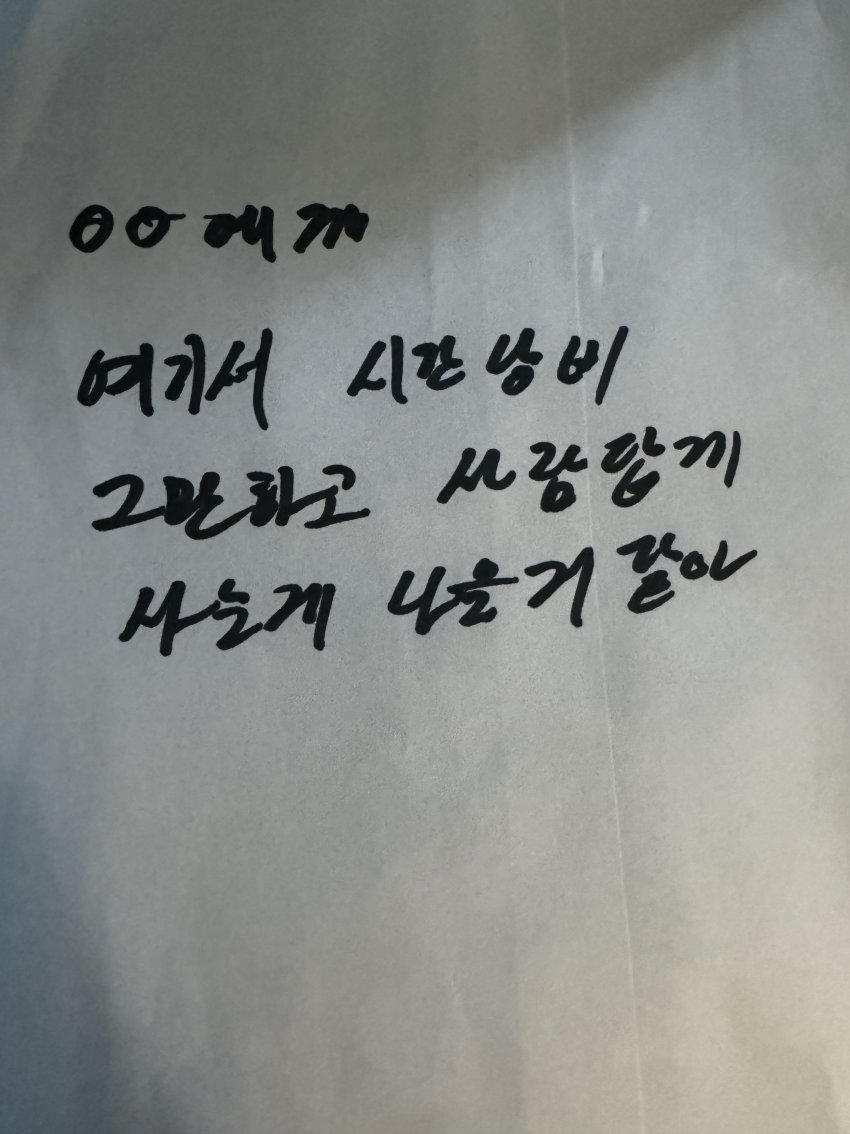 00에게
여기서 시간낭비
그만하고 사람답게
사는게 나을거 같아